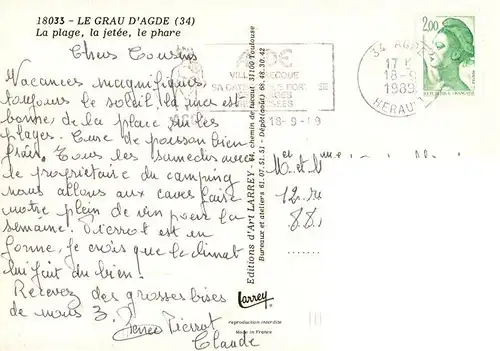 18033 - LE GRAU D'AGDE (34)
La plage, la jetée, le phare
Chers Cousins
Vacances magnifiques
toujours le soleil, la mer est
bonne de la place sur les
plages. Cure de poisson bien
frais. Tous les samedis avec
le propriétaire du camping
nous allons aux caves faire
notre plein de vin pour la
semaine. Pierrot est en
forme, je crois que le climat
lui fait du bien!
Recevez des grosses bises
de nous 3.
Pierrot
Claude
Editions d'Art LARREY - chemin de Tucaut 31100 Toulouse
Bureaux et ateliers 61.07.51.51 - Dépôt (août) 68.48.30.42
Larrey
reproduction interdite
Made in France
AGDE
VILLE GRECQUE
18-9-19
34 AGDE
17 H
18-9
1989
HERAULT
2,00
REPUBLIQUE FRANÇAISE
M et M
12
88